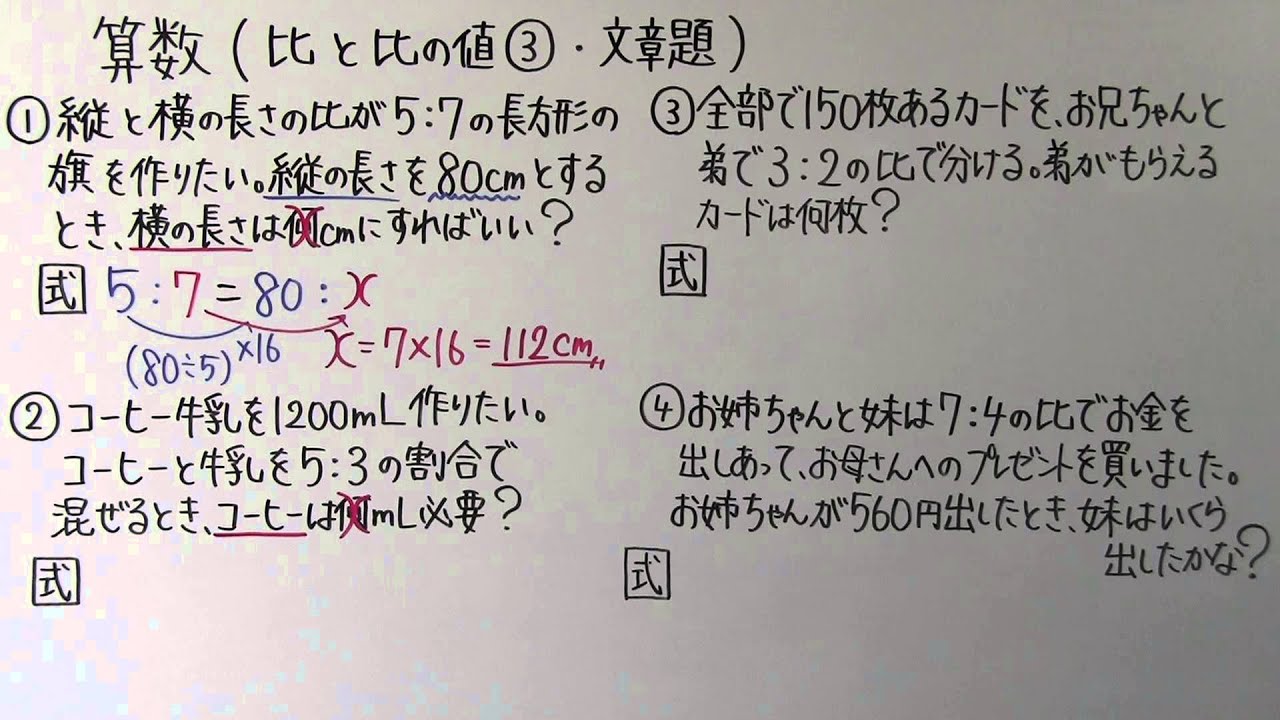 算数（比と比の値③・文章題）
①縦と横の長さの比が5:7の長方形の
旗を作りたい。縦の長さを80cmとする
とき、横の長さは何xcmにすればいい？
式 5:7=80:x
(80÷5) ×16 x=7×16=112cm
②コーヒー牛乳を1200mL作りたい。
コーヒーと牛乳を5:3の割合で
混ぜるとき、コーヒーは何xmL必要？
式
③全部で150枚あるカードを、お兄ちゃんと
弟で3:2の比で分ける。弟がもらえる
カードは何枚？
式
④お姉ちゃんと妹は7:4の比でお金を
出しあって、お母さんへのプレゼントを買いました。
お姉ちゃんが560円出したとき、妹はいくら
出したかな？
式